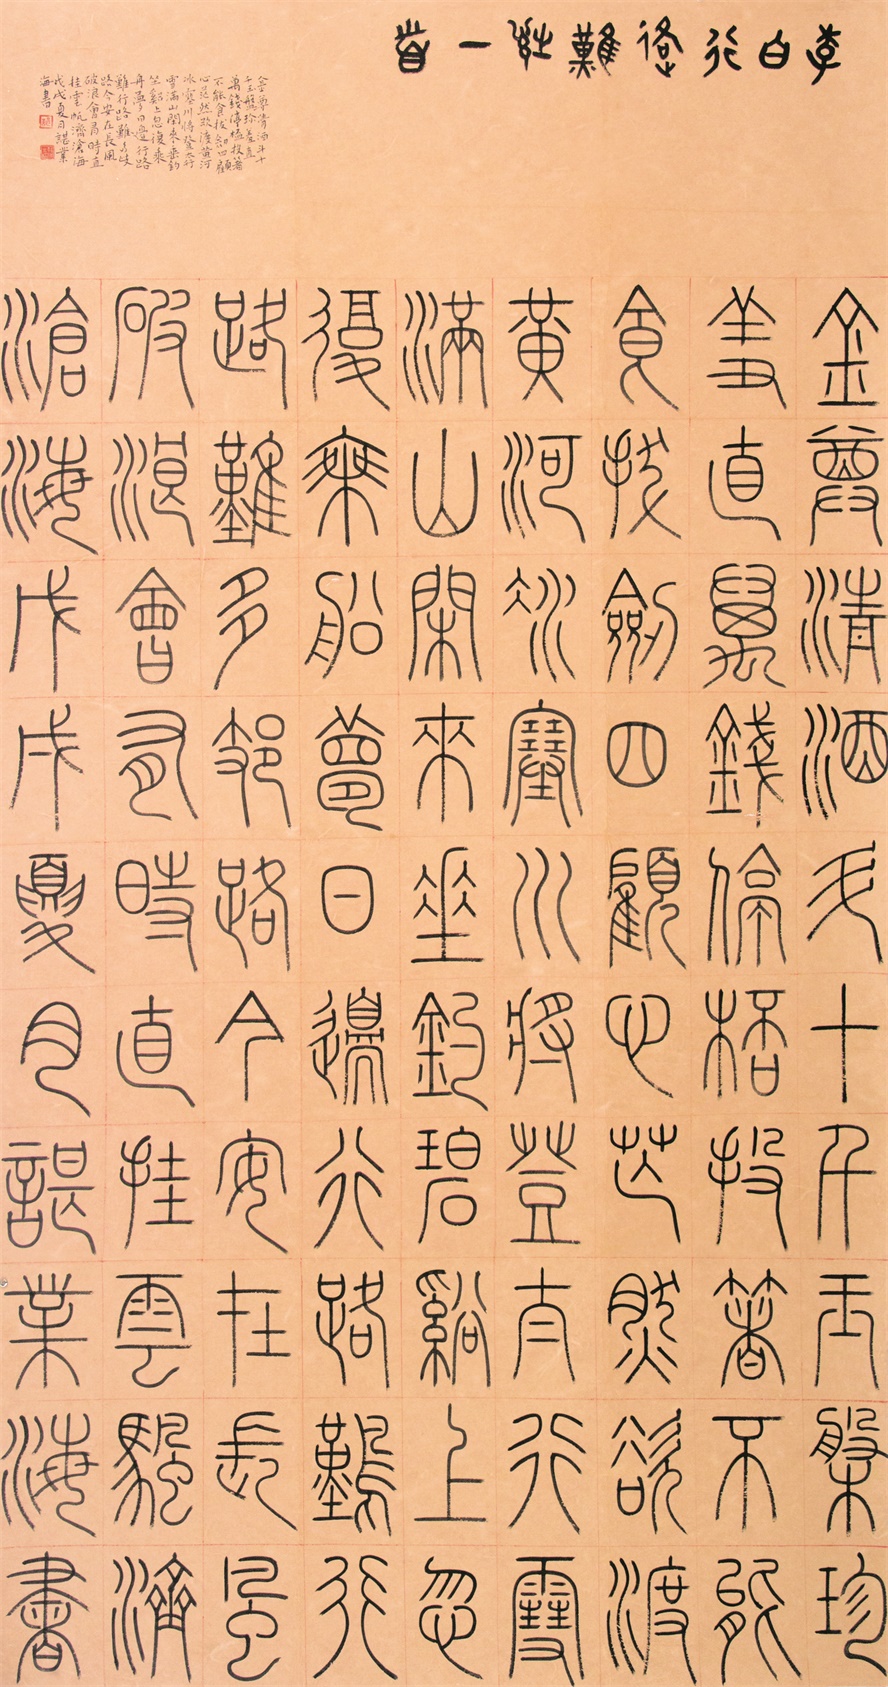 李白行路難詩一首
金尊清酒斗十
千玉盤珍羞直
萬錢停杯投箸
不能食拔劍四顧
心茫然欲渡黃河
冰塞川將登太行
雪滿山閑來垂釣
坐谿上忽復乘
舟夢日邊行路
難行路難多歧
路今安在長風
破浪會有時直
挂雲帆濟滄海
戊戌夏月諶業
海書
金尊清酒斗十千玉盤珍
羞直萬錢停桮投箸不能
食拔劍四顧心茫然欲渡
黃河冰塞川將登太行雪
滿山閑來坐釣碧谿上忽
復乘船夢日邊行路難行
路難多邻路今安在長風
破浪會有時直挂雲帆濟
滄海戊戌夏月諶業海書